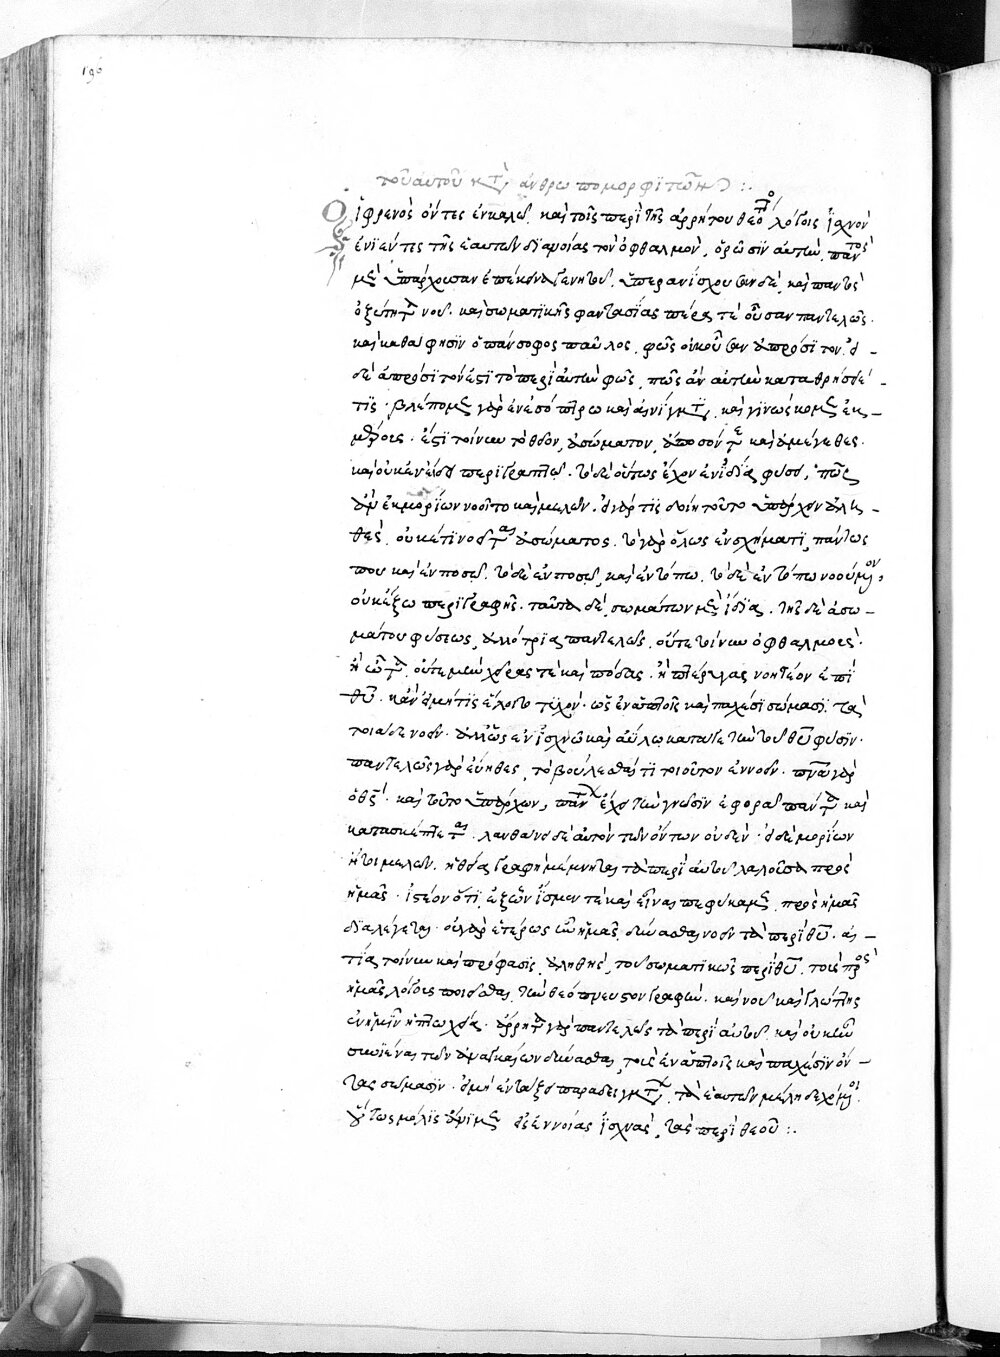 190
τοῦ αὐτοῦ κατὰ ἀνθρωπομορφϊτῶν :.
Οἱ φρενὸς ὄντες ἐν καλῷ, καὶ τοῖς περὶ τῆς ἀρρήτου θεότητος λόγοις ἰσχνὸν
ἐνϊέντες τῆς ἑαυτῶν διανοίας τὸν ὀφθαλμὸν, ὁρῶσϊν αὐτὴν παντὸς
μὲν ὑπάρχουσαν ἐπέκεινα γενητοῦ, ὑπερανίσχουσαν δὲ, καὶ παντὸς
ὀξύτητα νοῦ· καὶ σωματϊκῆς φαντασίας πέρα τὲ οὖσαν παντελῶς·
καὶ καθά φησϊν ὁ πάνσοφος παῦλος, φῶς οἰκοῦσαν ἀπρόσϊτον· εἰ
δὲ ἀπρόσϊτόν ἐστϊ τὸ περὶ αὐτὴν φῶς, πῶς ἂν αὐτὴν καταθρήσειέ
τϊς· βλέπομεν γὰρ ἐν ἐσόπτρω καὶ αἰνίγματϊ, καὶ γϊνώσκομεν ἐκ
μέρους· ἔστϊ τοίνυν τὸ θεῖον, ἀσώματον, ἄποσόν τε καὶ ἀμέγεθες·
καὶ οὐκ ἐν εἴδει περϊγραπτῷ· τὸ δὲ οὕτως ἔχον ἐν ἰδία φύσει, πῶς
ἂν ἐκ μορίων νοοῖτο καὶ μελῶν· εἰ γάρ τϊς δοίη τοῦτο ὑπάρχειν ἀλη
θὲς, οὐκέτϊ νοεῖται ἀσώματος· τὸ γὰρ ὅλως ἐν σχήματϊ, πάντως
που καὶ ἐν ποσῷ· τὸ δὲ ἐν ποσῷ, καὶ ἐν τόπω· τὸ δὲ ἐν τόπω νοούμενον,
οὐκ ἔξω περϊγραφῆς· ταῦτα δὲ, σωμάτων μὲν ἴδια, τῆς δὲ ἀσω
μάτου φύσεως, ἀλλότρϊα παντελῶς· οὔτε τοίνυν ὀφθαλμοὺς
ἢ ὦτα, οὔτε μὴν χεῖρας τὲ καὶ πόδας, ἢ πτέρυγας νοητέον ἐπὶ
θεοῦ· κἂν εἰ μή τϊς ἕλοιτο τυχὸν ὡς ἐν ἁπτοῖς καὶ παχέσϊ σώμασϊ τὰ
τοιάδε νοεῖν· ἀλλ' ὡς ἐν ἰσχνῶ καὶ ἀΰλω κατά γε τὴν τοῦ θεοῦ φύσϊν·
παντελῶς γὰρ εὔηθες, τὸ βούλεσθαί τϊ τοιοῦτον ἐννοεῖν· πνεῦμα γὰρ
ὁ θεὸς· καὶ τοῦτο ὑπάρχων, πάντων ἔχει τὴν γνῶσϊν· ἐφορᾷ πάντα καὶ
κατασκέπτεται· λανθάνει δὲ αὐτὸν τῶν ὄντων οὐδὲν· εἰ δὲ μορίων
ἤτοι μελῶν, ἡ θεία γραφὴ μέμνηται τὰ περὶ αὐτοῦ λαλοῦσα πρὸς
ἡμᾶς· ἰστέον ὅτϊ, ἐξ ὧν ἴσμεν τὲ καὶ εἶναι πεφύκαμεν, πρὸς ἡμᾶς
δϊαλέγεται· οὐ γὰρ ἑτέρως ἦν ἡμᾶς, δύνασθαι νοεῖν τὰ περὶ θεοῦ· αἰ
τία τοίνυν καὶ πρόφασϊς ἀληθὴς, τοῦ σωματϊκῶς περὶ θεοῦ, τοὺς πρὸς
ἡμᾶς λόγους ποιεῖσθαι, τὴν θεόπνευστον γραφὴν· καὶ νοῦ καὶ γλώττης
ἐν ἡμῖν ἡ πτωχεία· ἄρρητα γὰρ παντελῶς τὰ περὶ αὐτοῦ· καὶ οὐκ ἦν
συνϊέναι τῶν ἀναγκαίων δύνασθαι, τοὺς ἐν ἁπτοῖς καὶ παχέσϊν ὄν
τας σώμασϊν· εἰ μὴ ἐν τάξει παραδείγματος, τὰ ἑαυτῶν μέλη δεχόμενοι·
οὕτως μόλϊς ἄνϊμεν εἰς ἐννοίας ἰσχνὰς, τὰς περὶ θεοῦ :.